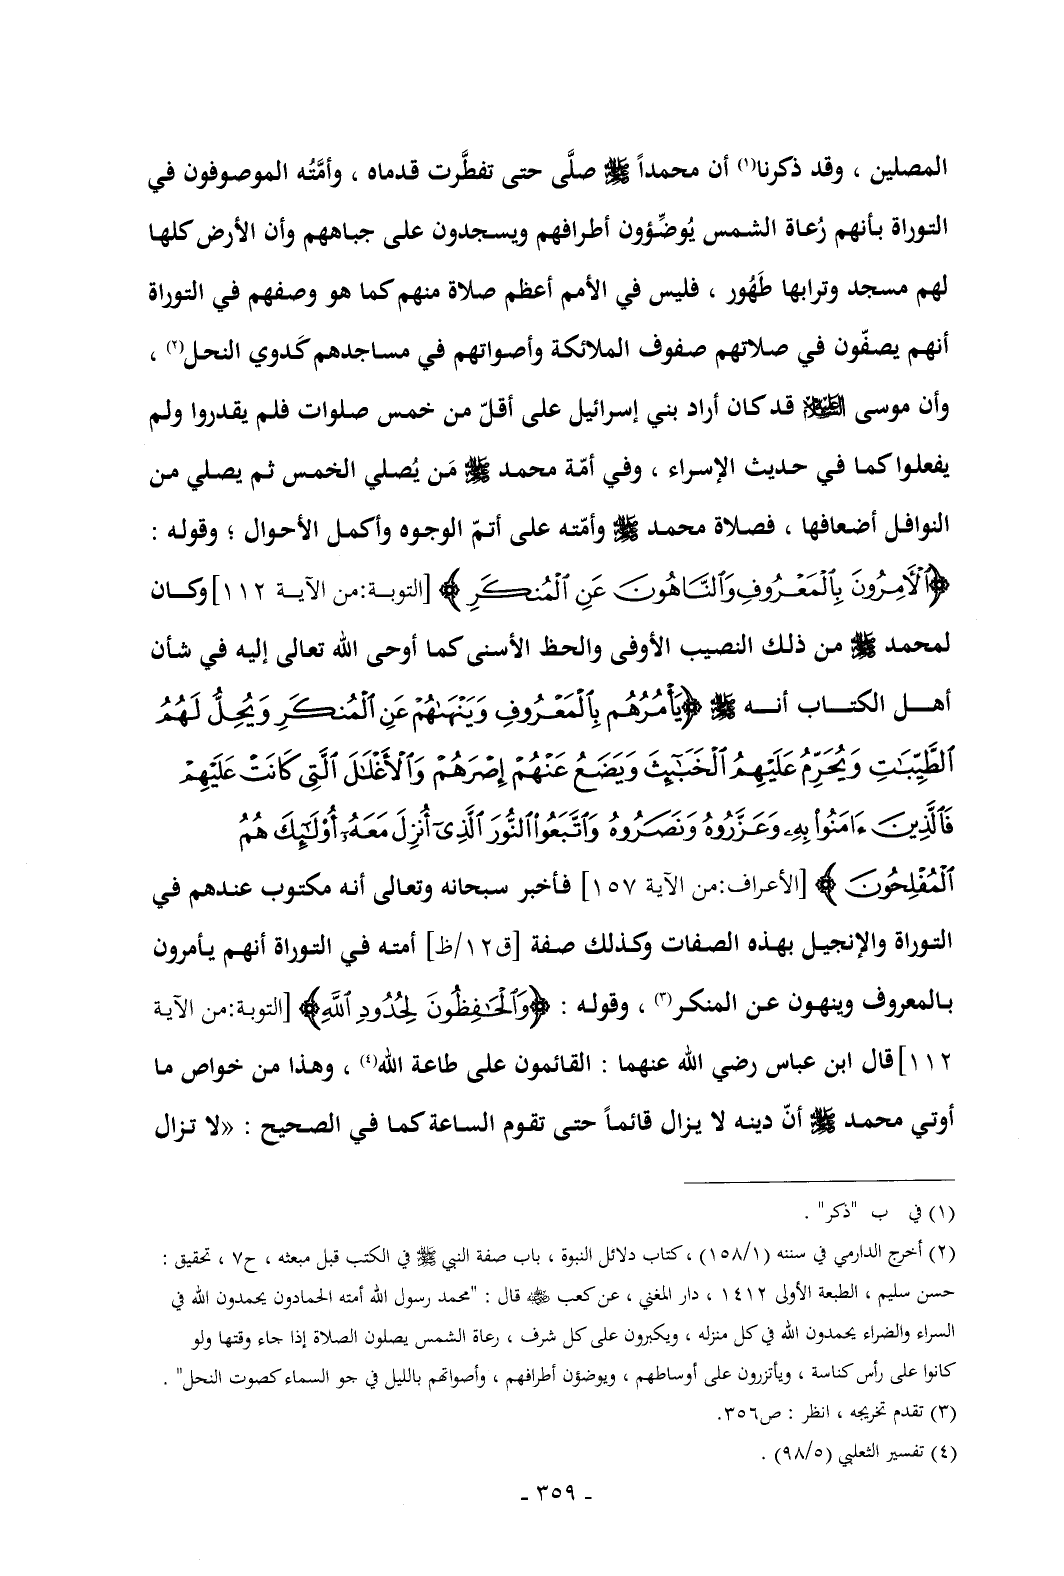 المصلين ، وقد ذكرنا(١) أن محمداً ﷺ صلَّى حتى تفطَّرت قدماه ، وأمَّتُه الموصوفون في
التوراة بأنهم رُعاة الشمس يُوضِّؤون أطرافهم ويسجدون على جباههم وأن الأرض كلها
لهم مسجد وترابها طَهُور ، فليس في الأمم أعظم صلاة منهم كما هو وصفهم في التوراة
أنهم يصفّون في صلاتهم صفوف الملائكة وأصواتهم في مساجدهم كَدوي النحل(٢) ،
وأن موسى العليه‌السلام قد كان أراد بني إسرائيل على أقلّ من خمس صلوات فلم يقدروا ولم
يفعلوا كما في حديث الإسراء ، وفي أمّة محمد ﷺ مَن يُصلي الخمس ثم يصلي من
النوافل أضعافها ، فصلاة محمد ﷺ وأمّته على أتمّ الوجوه وأكمل الأحوال ؛ وقوله :
﴿ٱلْأَمِرُونَ بِٱلْمَعْرُوفِ وَٱلنَّاهُونَ عَنِ ٱلْمُنكَرِ﴾ [التوبة:من الآية ١١٢] وكان
لمحمد ﷺ من ذلك النصيب الأوفى والحظ الأسنى كما أوحى الله تعالى إليه في شأن
أهل الكتاب أنه ﷺ ﴿يَأْمُرُهُم بِٱلْمَعْرُوفِ وَيَنْهَىٰهُمْ عَنِ ٱلْمُنكَرِ وَيُحِلُّ لَهُمُ
ٱلطَّيِّبَٰتِ وَيُحَرِّمُ عَلَيْهِمُ ٱلْخَبَٰٓئِثَ وَيَضَعُ عَنْهُمْ إِصْرَهُمْ وَٱلْأَغْلَٰلَ ٱلَّتِى كَانَتْ عَلَيْهِمْ
فَٱلَّذِينَ ءَامَنُوا۟ بِهِۦ وَعَزَّرُوهُ وَنَصَرُوهُ وَٱتَّبَعُوا۟ ٱلنُّورَ ٱلَّذِىٓ أُنزِلَ مَعَهُۥٓ أُو۟لَٰٓئِكَ هُمُ
ٱلْمُفْلِحُونَ﴾ [الأعراف:من الآية ١٥٧] فأخبر سبحانه وتعالى أنه مكتوب عندهم في
التوراة والإنجيل بهذه الصفات وكذلك صفة [ق١٢/ظ] أمته في التوراة أنهم يأمرون
بالمعروف وينهون عن المنكر(٣) ، وقوله : ﴿وَٱلْحَٰفِظُونَ لِحُدُودِ ٱللَّهِ﴾ [التوبة:من الآية
١١٢] قال ابن عباس رضي الله عنهما : القائمون على طاعة الله(٤) ، وهذا من خواص ما
أوتي محمد ﷺ أنّ دينه لا يزال قائماً حتى تقوم الساعة كما في الصحيح : «لا تزال
(١) في ب "ذكر" .
(٢) أخرج الدارمي في سننه (١٥٨/١) ، كتاب دلائل النبوة ، باب صفة النبي ﷺ في الكتب قبل مبعثه ، ح٧ ، تحقيق :
حسن سليم ، الطبعة الأولى ١٤١٢ ، دار المغني ، عن كعب قال : "محمد رسول الله أمته الحمادون يحمدون الله في
السراء والضراء يحمدون الله في كل منزله ، ويكبرون على كل شرف ، رعاة الشمس يصلون الصلاة إذا جاء وقتها ولو
كانوا على رأس كناسة ، ويأتزرون على أوساطهم ، ويوضؤن أطرافهم ، وأصواتهم بالليل في جو السماء كصوت النحل" .
(٣) تقدم تخريجه ، انظر : ص٣٥٦.
(٤) تفسير الثعلبي (٩٨/٥) .
- ٣٥٩ -